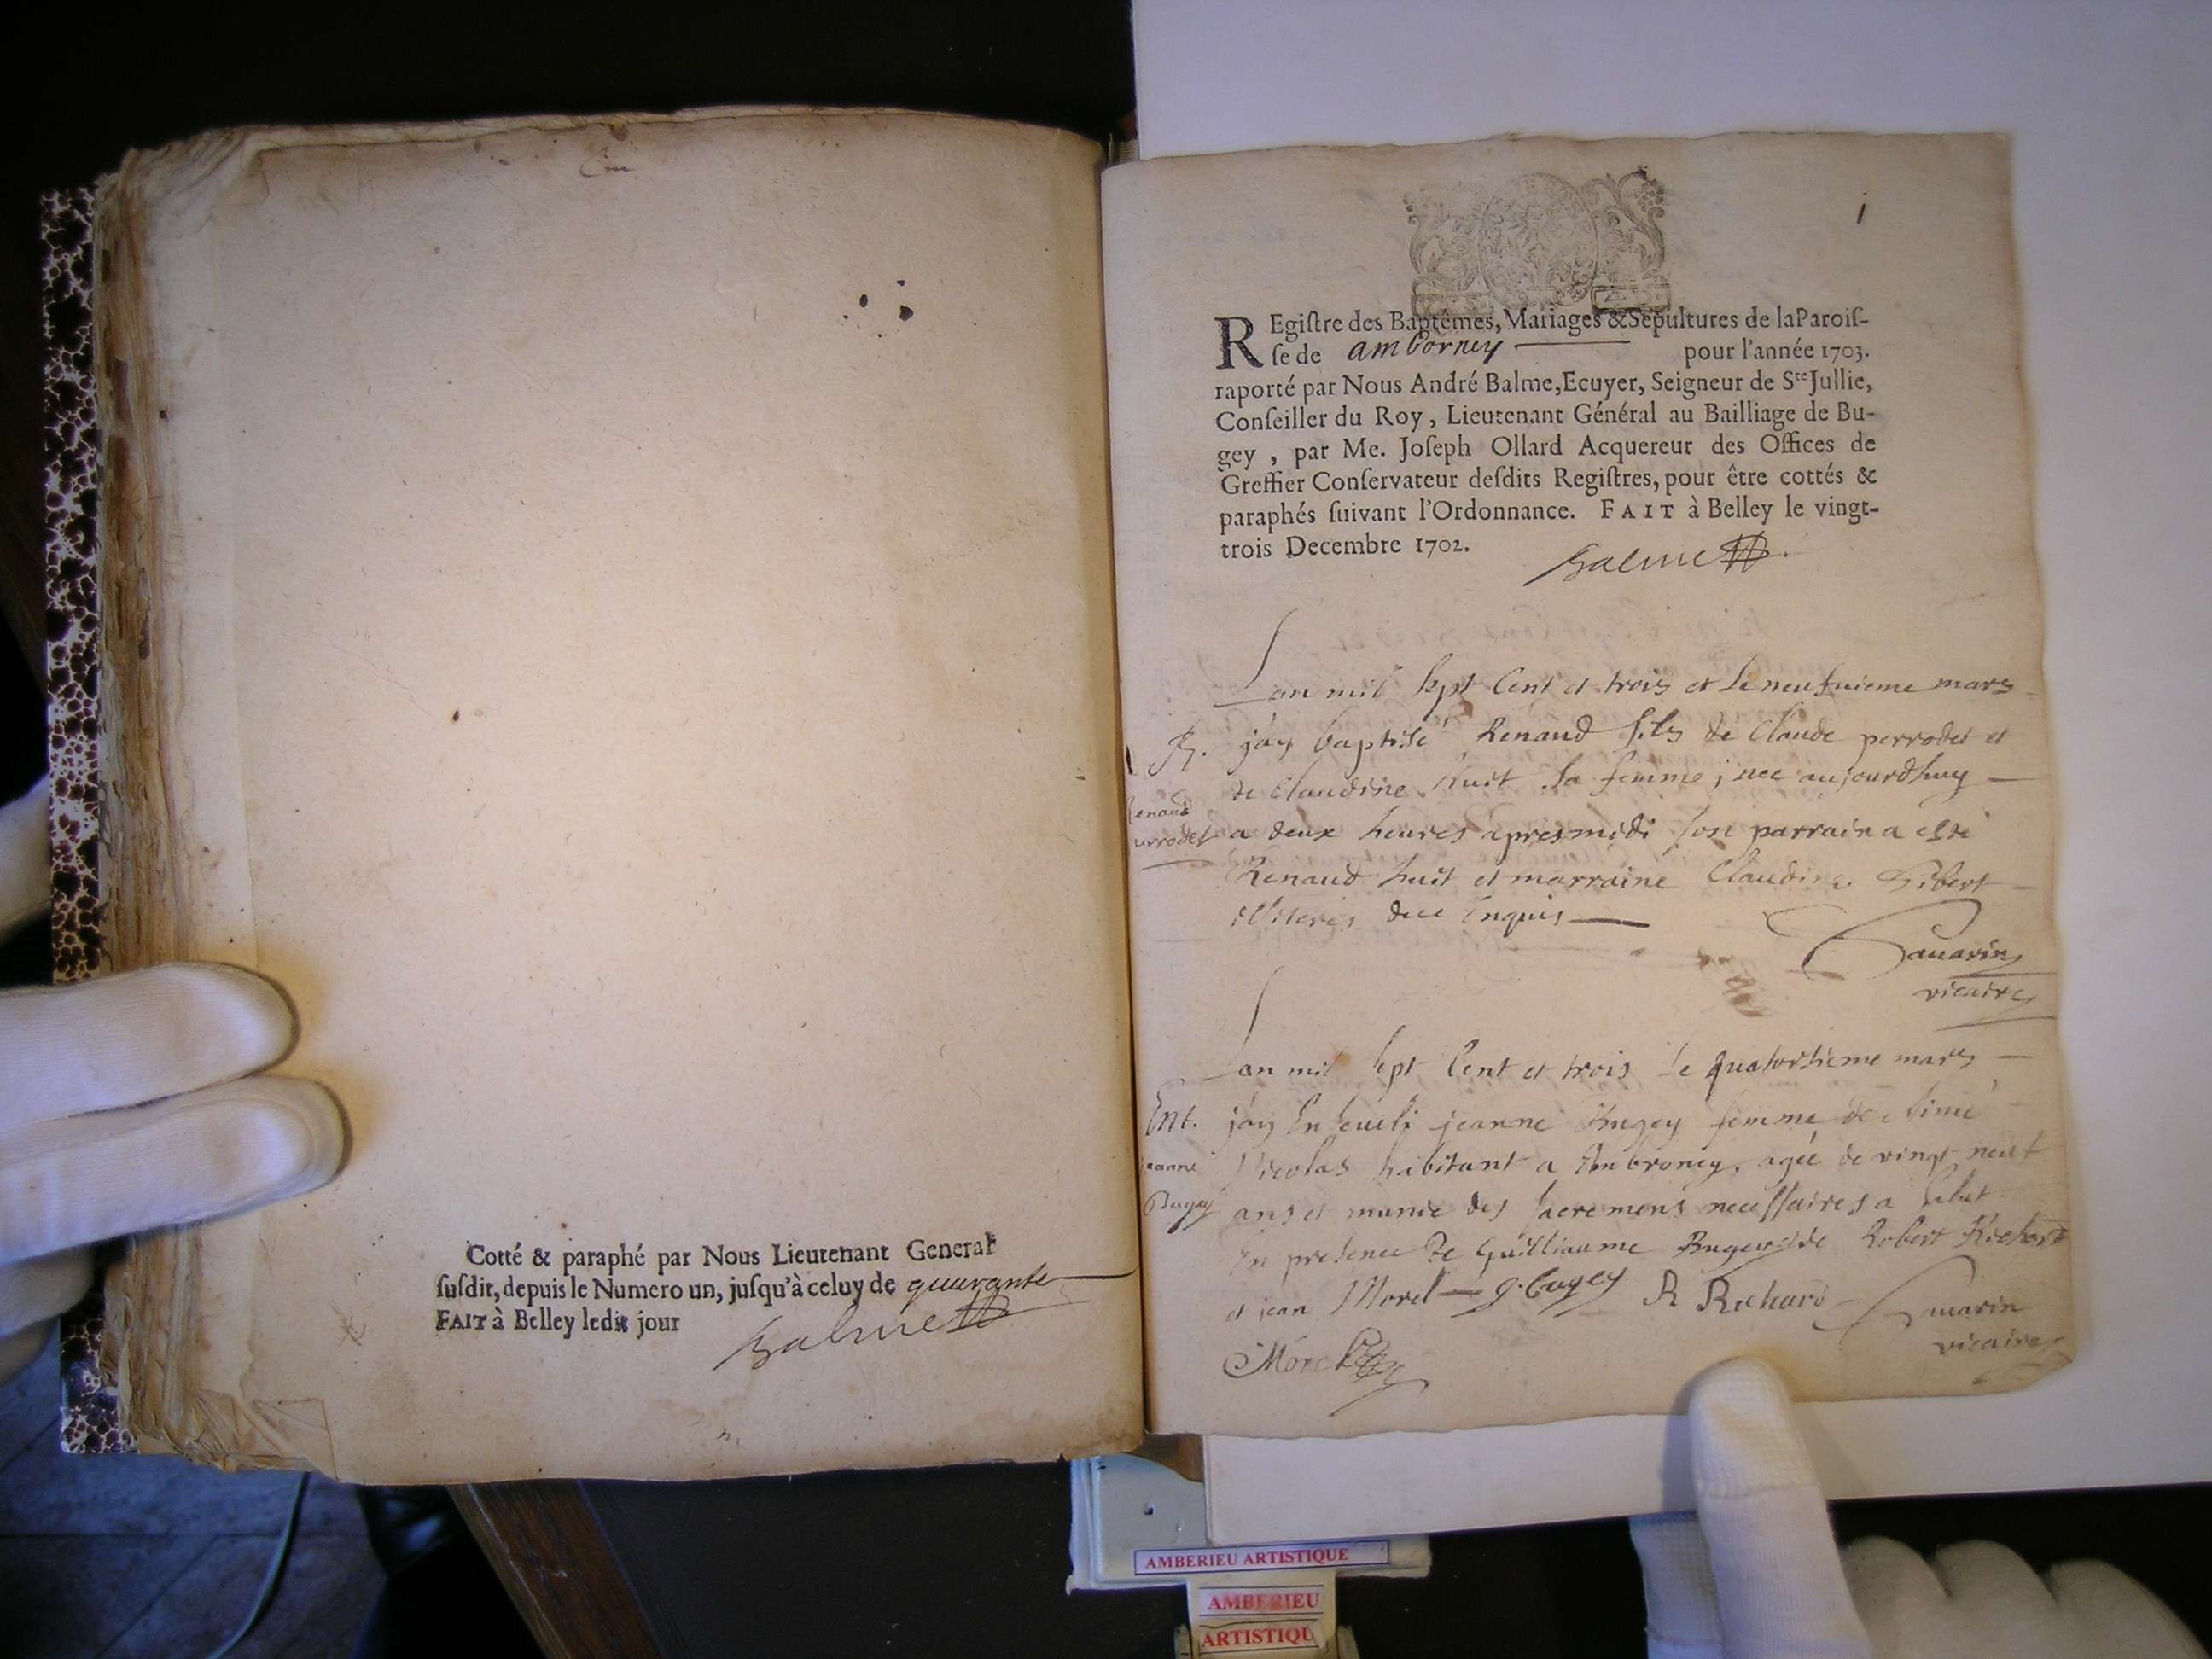 Cotté & paraphé par Nous Lieutenant General
susdit, depuis le Numero un, jusqu'à celuy de quarante
FAIT à Belley ledit jour
Balme
1
REgistre des Baptêmes, Mariages & Sepultures de la Parois-
se de amborney pour l'année 1703.
raporté par Nous André Balme, Ecuyer, Seigneur de Ste Jullie,
Conseiller du Roy, Lieutenant Général au Bailliage de Bu-
gey, par Me. Joseph Ollard Acquereur des Offices de
Greffier Conservateur desdits Registres, pour être cottés &
paraphés suivant l'Ordonnance. FAIT à Belley le vingt-
trois Decembre 1702.
Balme
Lan mil sept Cent et trois et le neufvieme mars
B. jáy baptisé Renaud fils de Claude perrodet et
de Claudine huit sa femme, nee aujourdhuy
Renaud
perrodet
a deux heures apresmidi son parrain a esté
Renaud huit et marraine Claudine Gibert
illiterés de ce Enquis
Sauarin
vicaire
Lan mil sept Cent et trois le quatorsieme mars
Ent. jáy Enseueli jeanne Bugey femme de Aimé
jeanne
Bugey
Nicolas habitant a Ambroney, agée de vingt neuf
ans et munie des sacremens necessaires a salut
En presence de Guilliaume Bugey de Robert Richard
et jean Morel G. bugey R Richard Sauarin
vicaire
Morel
AMBERIEU ARTISTIQUE
AMBERIEU
ARTISTIQU